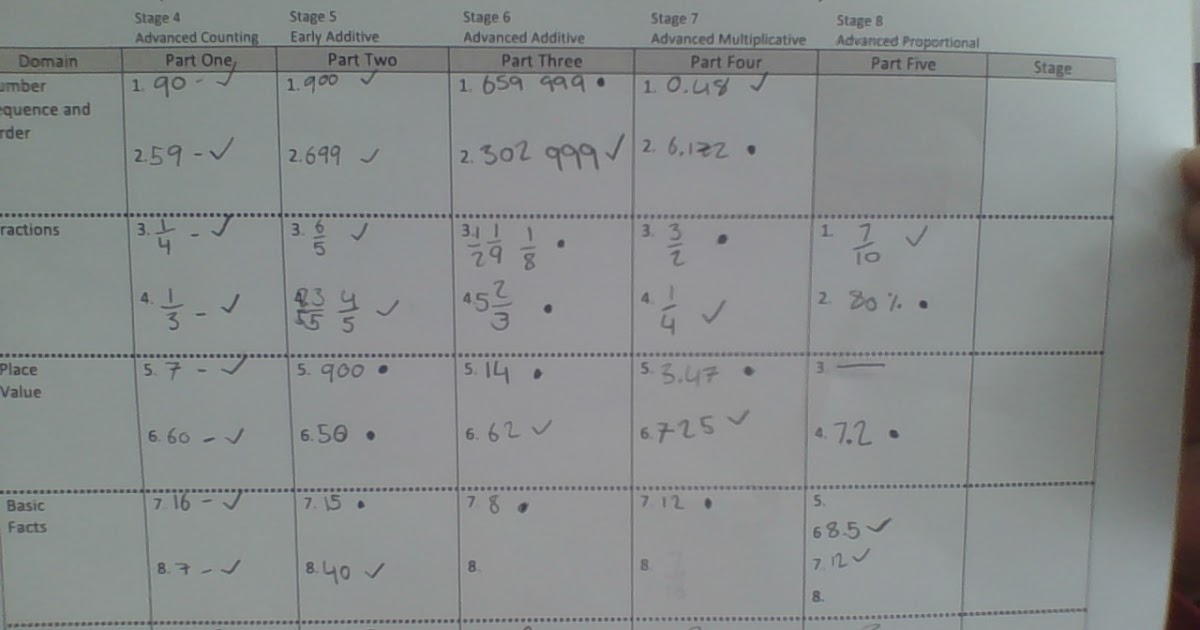 Stage 4 Stage 5 Stage 6 Stage 7 Stage 8
Advanced Counting Early Additive Advanced Additive Advanced Multiplicative Advanced Proportional
Domain Part One Part Two Part Three Part Four Part Five Stage
umber 1. 90 - ✓ 1. 900 ✓ 1. 659 999 • 1. 0.48 ✓
equence and
rder
2. 59 - ✓ 2. 699 ✓ 2. 302 999 ✓ 2. 6.122 •
ractions 3. 1/4 - ✓ 3. 6/5 ✓ 3. 1/2 1/9 1/8 • 3. 3/2 • 1. 7/10 ✓
4. 1/3 - ✓ 4/5 ✓ 4 5 2/3 • 4. 1/4 ✓ 2. 80% •
Place 5. 7 - ✓ 5. 900 • 5. 14 • 5. 3.47 • 3. —
Value
6. 60 - ✓ 6. 50 • 6. 62 ✓ 6. 725 ✓ 4. 7.2 •
Basic 7. 16 - ✓ 7. 15 • 7. 8 • 7. 12 • 5.
Facts
6 8.5 ✓
8. 7 - ✓ 8. 40 ✓ 8. 8. 7. 12 ✓
8.